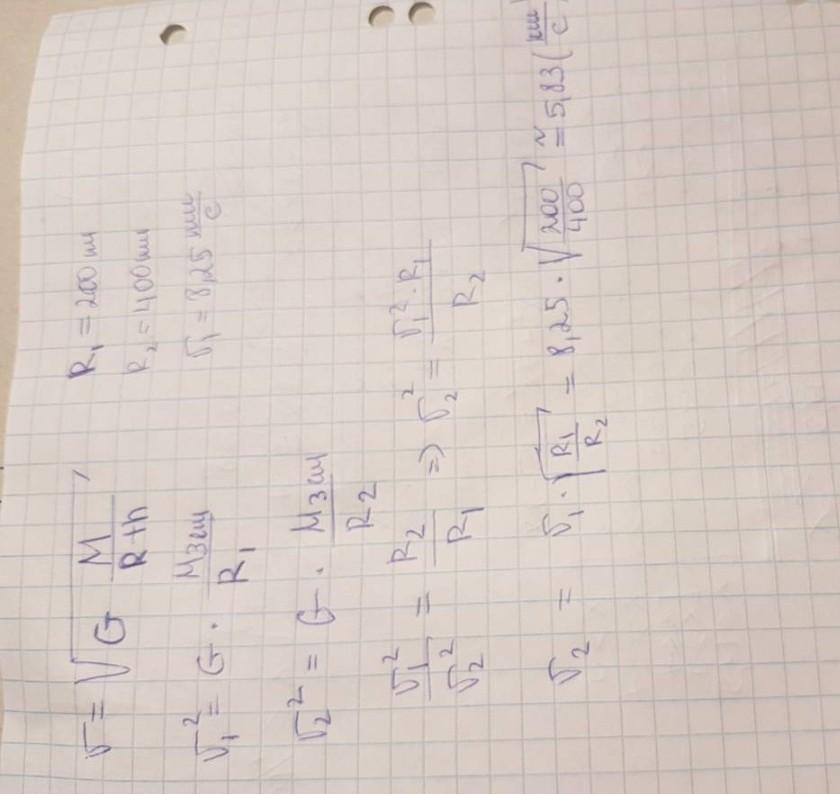 v = √(G M/(R+h))
R₁ = 200 км
R₂ = 400 км
v₁ = 8,25 км/с
v₁² = G · Mзем/R₁
v₂² = G · Mзем/R₂
v₁²/v₂² = R₂/R₁ => v₂² = v₁² · R₁/R₂
v₂ = v₁ · √(R₁/R₂) = 8,25 · √(200/400) ≈ 5,83 (км/с